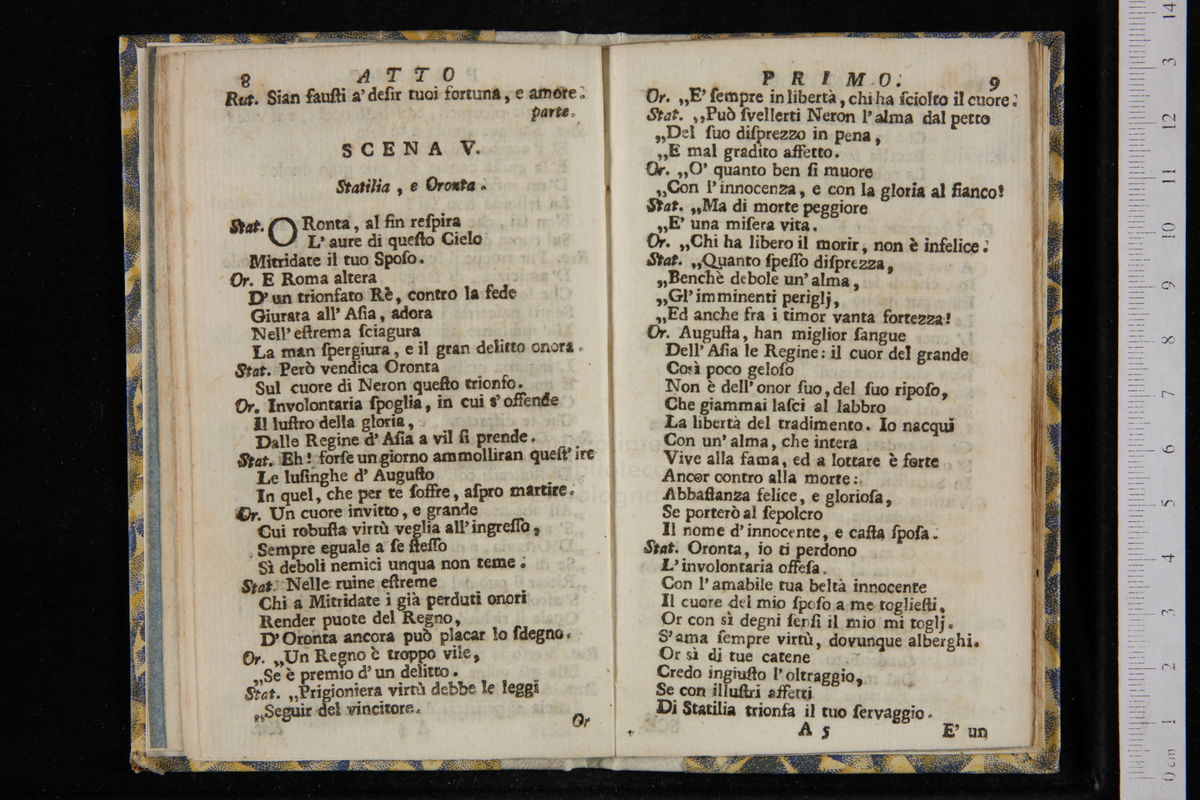 8 ATTO
Rut. Sian fauſti a' deſir tuoi fortuna, e amore.
parte.
SCENA V.
Statilia, e Oronta.
Stat. ORonta, al fin reſpira
L'aure di queſto Cielo
Mitridate il tuo Spoſo.
Or. E Roma altera
D'un trionfato Rè, contro la fede
Giurata all'Aſia, adora
Nell'eſtrema ſciagura
La man ſpergiura, e il gran delitto onora.
Stat. Però vendica Oronta
Sul cuore di Neron queſto trionfo.
Or. Involontaria ſpoglia, in cui s'offende
Il luſtro della gloria,
Dalle Regine d'Aſia a vil ſi prende.
Stat. Eh! forſe un giorno ammolliran queſt'ire
Le luſinghe d'Auguſto
In quel, che per te ſoffre, aſpro martire.
Or. Un cuore invitto, e grande
Cui robuſta virtù veglia all'ingreſſo,
Sempre eguale a ſe ſteſſo
Sì deboli nemici unqua non teme.
Stat. Nelle ruine eſtreme
Chi a Mitridate i già perduti onori
Render puote del Regno,
D'Oronta ancora può placar lo ſdegno.
Or. „Un Regno è troppo vile,
„Se è premio d'un delitto.
Stat. „Prigioniera virtù debbe le leggi
„Seguir del vincitore.
Or
PRIMO. 9
Or. „E' ſempre in libertà, chi ha ſciolto il cuore.
Stat. „Può ſvellerti Neron l'alma dal petto
„Del ſuo diſprezzo in pena,
„E mal gradito affetto.
Or. „O' quanto ben ſi muore
„Con l'innocenza, e con la gloria al fianco!
Stat. „Ma di morte peggiore
„E' una miſera vita.
Or. „Chi ha libero il morir, non è infelice.
Stat. „Quanto ſpeſſo diſprezza,
„Benchè debole un'alma,
„Gl'imminenti periglj,
„Ed anche fra i timor vanta fortezza!
Or. Auguſta, han miglior ſangue
Dell'Aſia le Regine: il cuor del grande
Così poco geloſo
Non è dell'onor ſuo, del ſuo ripoſo,
Che giammai laſci al labbro
La libertà del tradimento. Io nacqui
Con un'alma, che intera
Vive alla fama, ed a lottare è forte
Ancor contro alla morte:
Abbaſtanza felice, e glorioſa,
Se porterò al ſepolcro
Il nome d'innocente, e caſta ſpoſa.
Stat. Oronta, io ti perdono
L'involontaria offeſa.
Con l'amabile tua beltà innocente
Il cuore del mio ſpoſo a me toglieſti,
Or con sì degni ſenſi il mio mi toglj.
S'ama ſempre virtù, dovunque alberghi.
Or sì di tue catene
Credo ingiuſto l'oltraggio,
Se con illuſtri affetti
Di Statilia trionfa il tuo ſervaggio.
A 5 E' un
0 cm 1 2 3 4 5 6 7 8 9 10 11 12 3 14